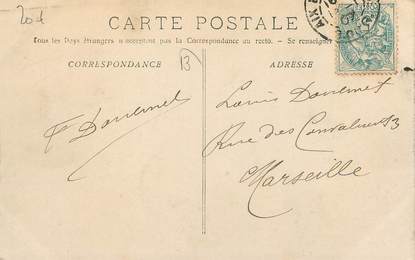 20 d
CARTE POSTALE
Tous les Pays Etrangers n'acceptent pas la Correspondance au recto. - Se renseigner
CORRESPONDANCE
13
ADRESSE
AIX
07
Louis
Rue des 3
Marseille